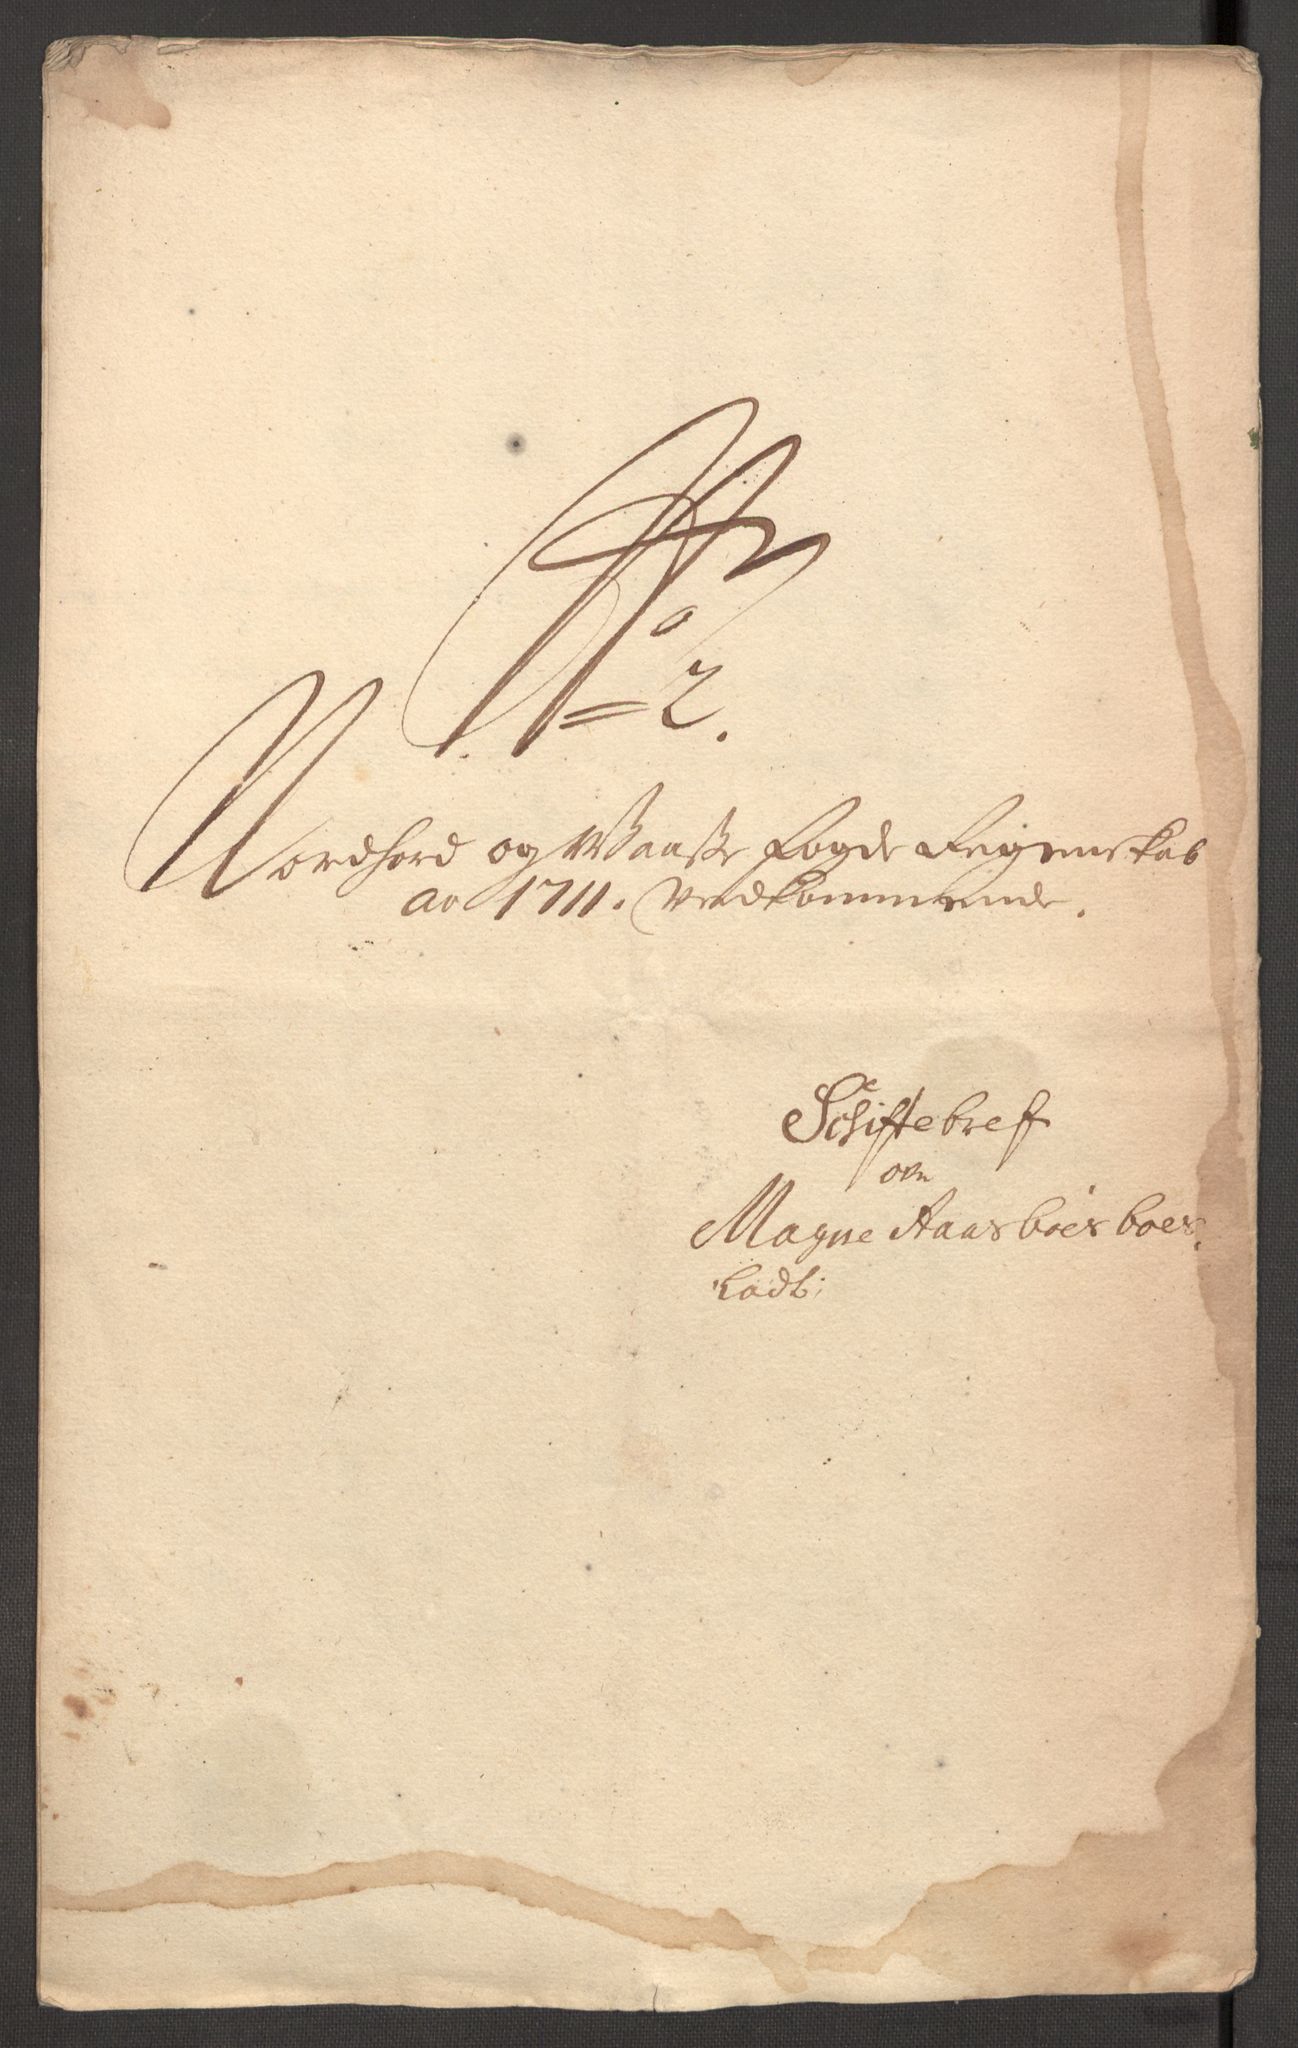 No
2.
Nordhord og Waaße Fogde Regenskab
ao 1711. Vedkommende.
Schiftebref
om
Magne Aaasböes boes
ladt: